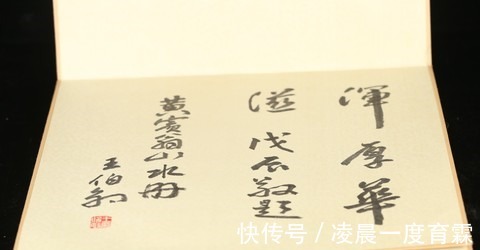 浑厚華
滋 戊辰敬題
黄賓翁山水册
王伯敏
快传号/凌晨一度育霖